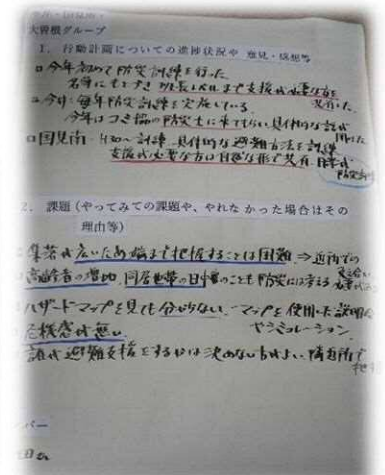 大曽根グループ
1. 行動計画についての進捗状況や 意見・感想等
□今年初めて防災訓練を行った
名簿にもとづき 班長レベルまで支援が必要な方を
共有した
□今井:毎年防災訓練を実施している
今年は つき協の防災士に来てもらい具体的な話が
聞けた
□国見南 訓練 具体的な避難方法を訓練
支援が必要な方は自然な形で共有
2. 課題(やってみての課題や、やれなかった場合はその
理由等)
集落が広いため端まで把握することは困難 ⇒ 近所での
支え合い
高齢者の増加 同居世帯の日中のことも防災には考える
ハザードマップを見ても分からない マップを使用した説明会
やシミュレーション
危機感が無い
誰が避難支援をするかは決めない方がよい 隣近所で